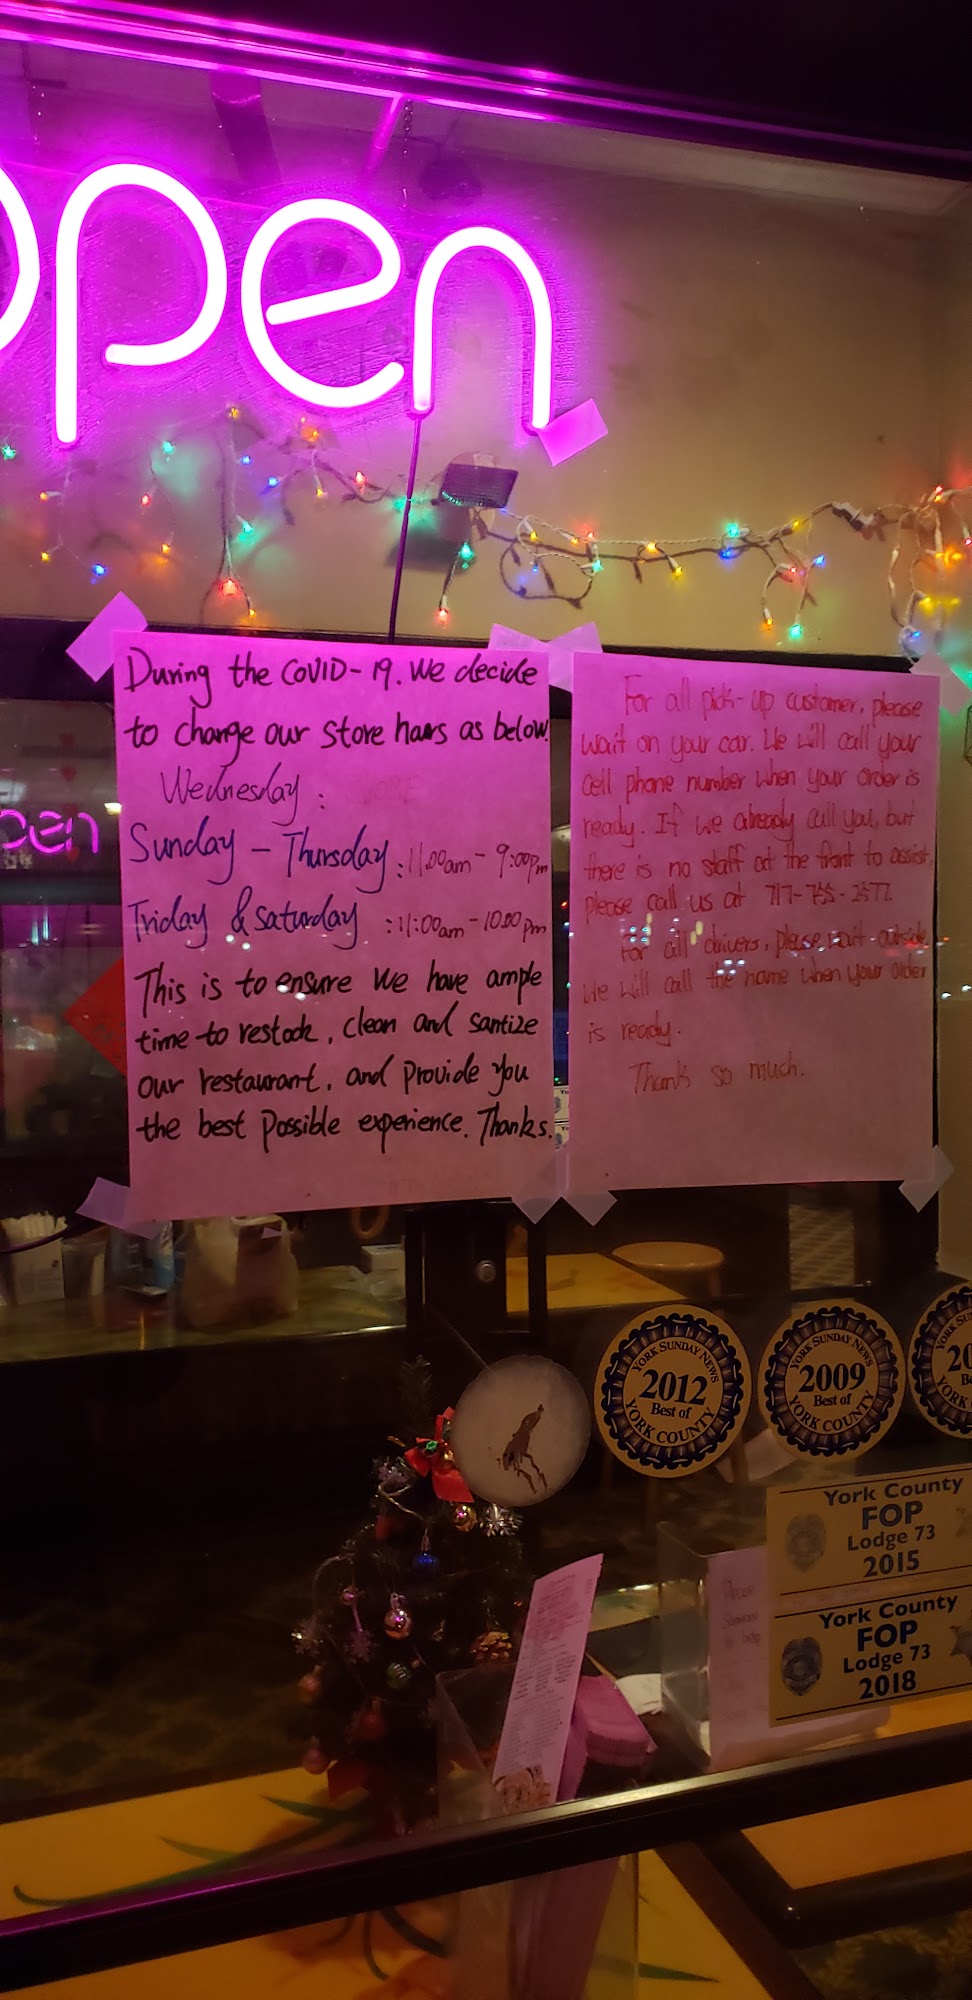 open
During the COVID-19. We decide
to change our store hours as below.
Wednesday :
Sunday - Thursday : 11:00am - 9:00pm
Friday & Saturday : 11:00am - 10:00pm
This is to ensure we have ample
time to restock, clean and santize
our restaurant, and provide you
the best possible experience. Thanks.
For all pick-up customer, please
wait on your car. We will call your
cell phone number when your order is
ready. If we already call you, but
there is no staff at the front to assist,
please call us at 717-755-2577.
For all drivers, please wait outside.
We will call the name when your order
is ready.
Thank so much.
open
YORK SUNDAY NEWS
2012
Best of
YORK COUNTY
YORK SUNDAY NEWS
2009
Best of
YORK COUNTY
York County
FOP
Lodge 73
2015
York County
FOP
Lodge 73
2018
Please